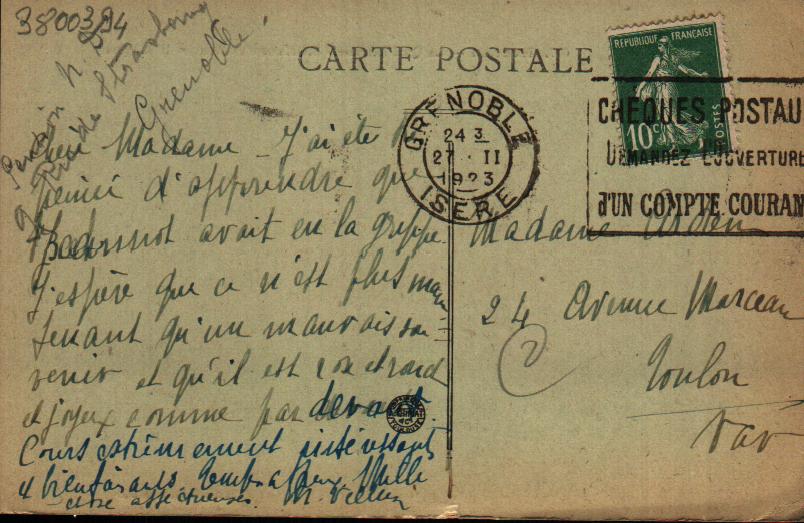 3800394
Pension N.D.
9 Rue de Strasbourg
Grenoble
CARTE POSTALE
REPUBLIQUE FRANÇAISE
10c POSTES
GRENOBLE
24 3
27 · II
1923
ISERE
CHEQUES POSTAU
DEMANDEZ L'OUVERTURE
d'UN COMPTE COURAN
Madame _ J'ai été
peiné d'apprendre que
avait eu la grippe.
J'espère que ce n'est plus main
tenant qu'un mauvais sou
venir et qu'il est rond
et joyeux comme par devant
Cours extrêmement intéressants
& bienfaisants. Mille
choses affectueuses. M.
Madame
24 Avenue Marceau
Toulon
Var